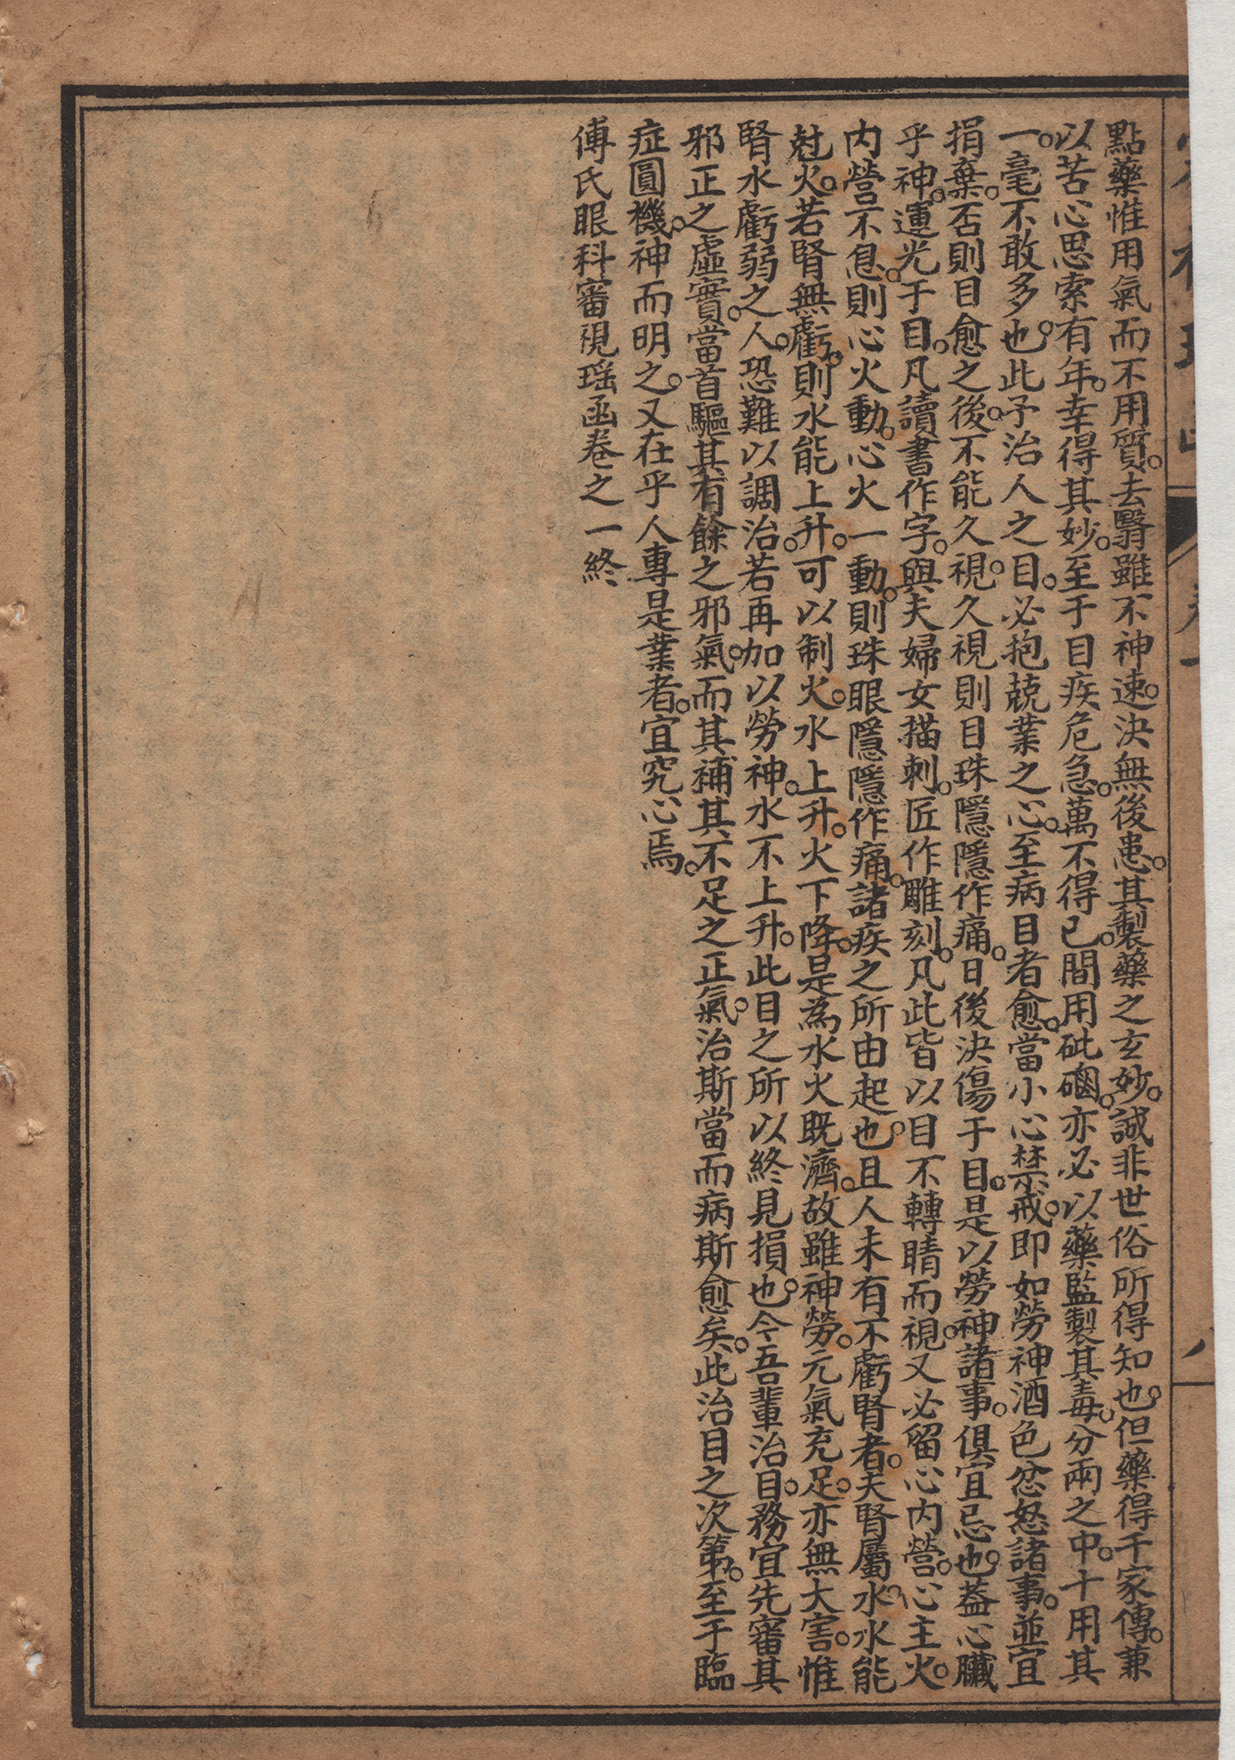 點藥惟用氣而不用質。去翳雖不神速。決無後患。其製藥之玄妙。誠非世俗所得知也。但藥得千家傳。兼
以苦心思索有年。幸得其妙。至于目疾危急。萬不得已。間用砒磠。亦必以藥監製其毒。分兩之中。十用其
一。毫不敢多也。此予治人之目。必抱兢業之心。至病目者愈。當小心禁戒。即如勞神酒色忿怒諸事。並宜
捐棄。否則目愈之後。不能久視。久視則目珠隱隱作痛。日後決傷于目。是以勞神諸事。俱宜忌也。葢心臟
乎神。運光于目。凡讀書作字。與夫婦女描刺。匠作雕刻。凡此皆以目不轉睛而視。又必留心內營。心主火。
內營不息。則心火動。心火一動。則珠眼隱隱作痛。諸疾之所由起也。且人未有不虧腎者。夫腎屬水。水能
尅火。若腎無虧。則水能上升。可以制火。水上升。火下降。是為水火既濟。故雖神勞。元氣充足。亦無大害。惟
腎水虧弱之人。恐難以調治。若再加以勞神。水不上升。此目之所以終見損也。今吾輩治目。務宜先審其
邪正之虛實。當首驅其有餘之邪氣。而其補其不足之正氣。治斯當而病斯愈矣。此治目之次第。至于臨
症圓機。神而明之。又在乎人專是業者。宜究心焉。
傅氏眼科審視瑶函卷之一終